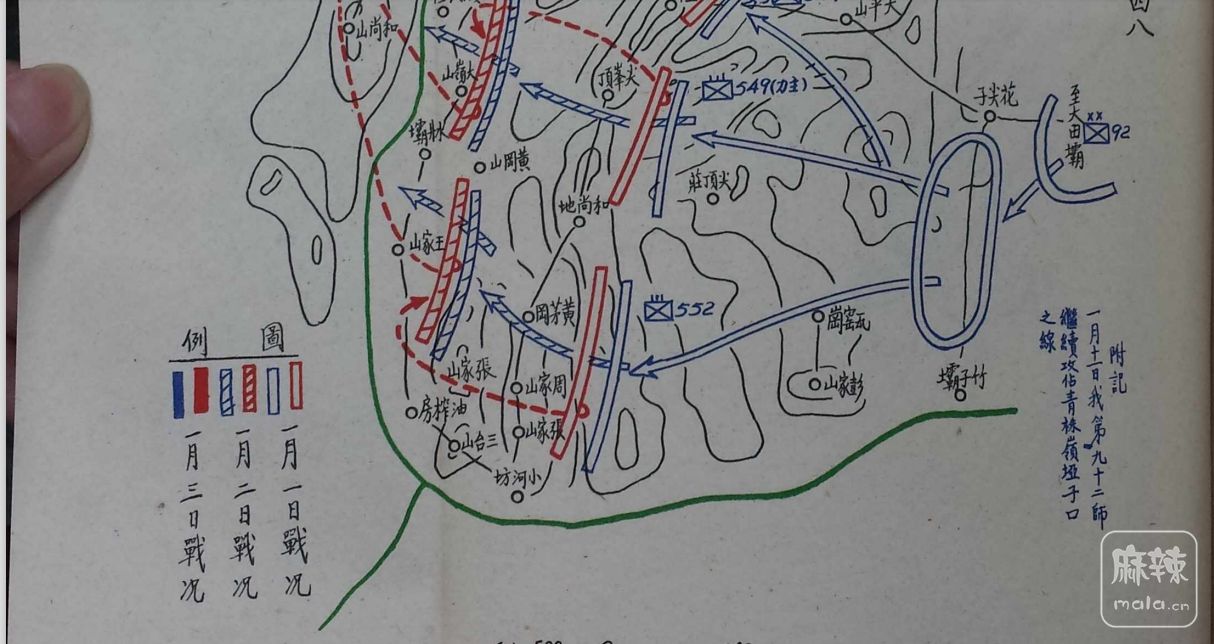 四八
尖平山
花尖子
至大田壩
92
549(主力)
尖峯頂
和尚山
大嶺山
黃岡山
尖頂莊
和尚地
王家山
552
黃芳岡
瓦窰崗
彭家山
竹子壩
張家山
周家山
油榨房
張家山
三台山
小河坊
附記
一月十二日我第九十二師
繼續攻佔青林嶺埡子口
之線
圖例
一月一日戰况
一月二日戰况
一月三日戰况
麻辣
mala.cn